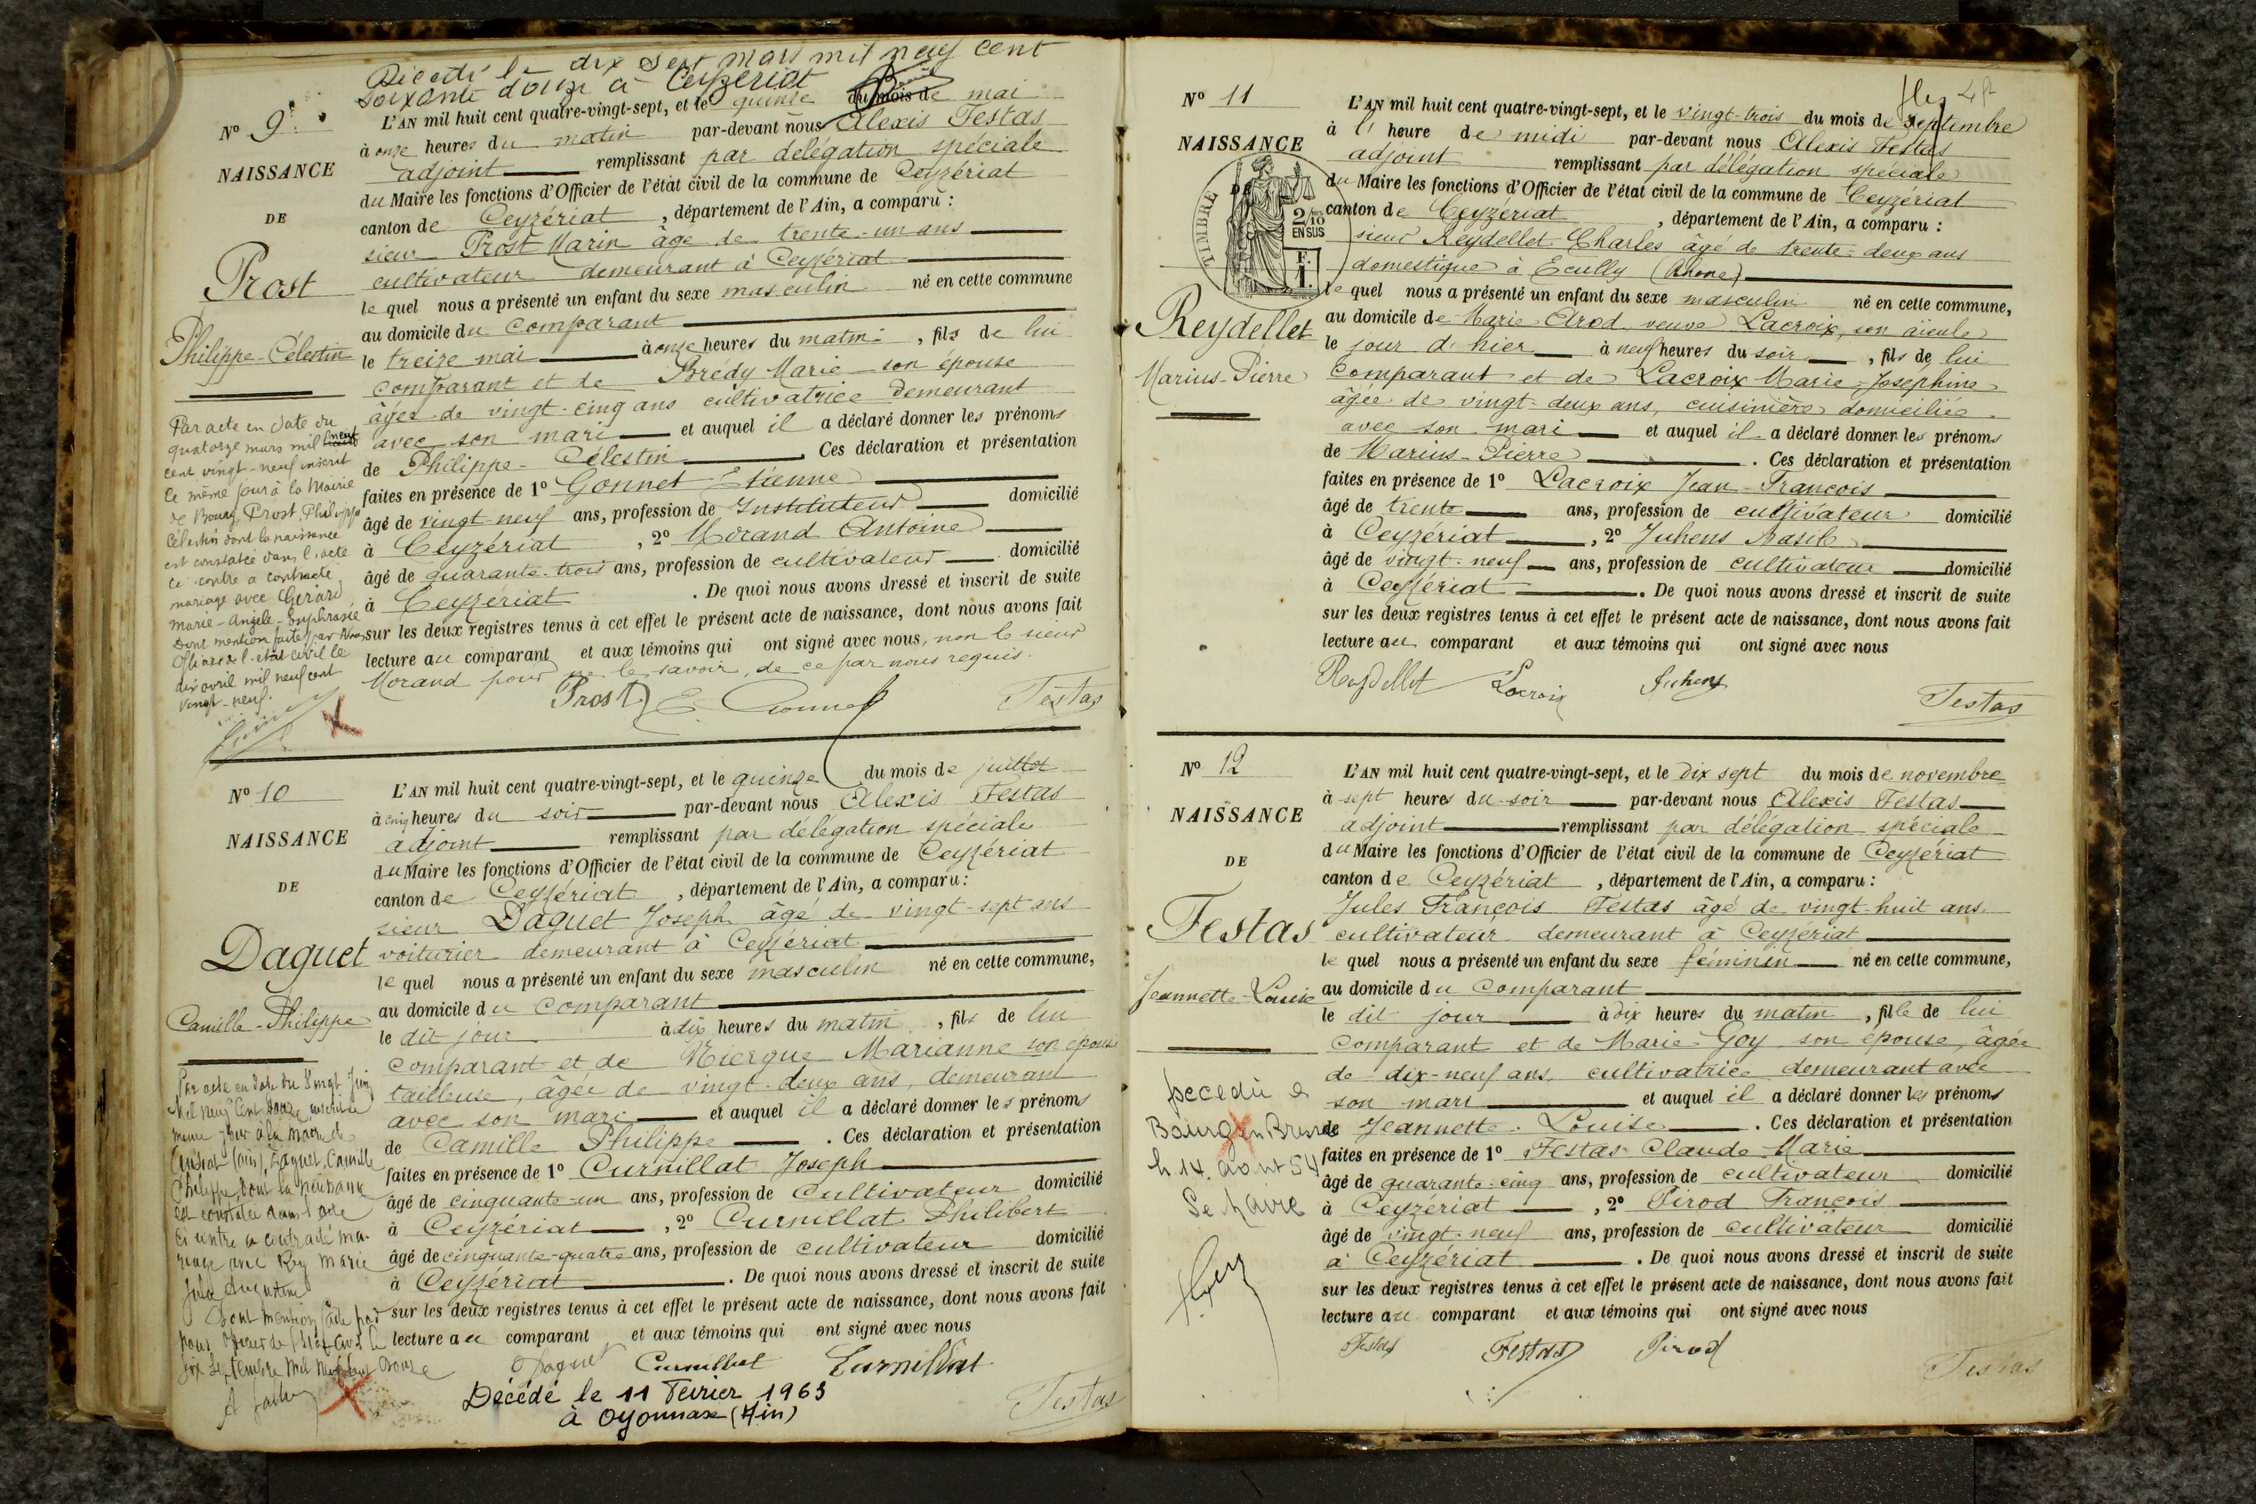 Décédé le dix sept mars mil neuf cent
soixante douze à Ceyzeriat
N° 9
NAISSANCE
DE
Prost
Philippe-Célestin
L'AN mil huit cent quatre-vingt-sept, et le quinze du mois de mai
à onze heures du matin par-devant nous Alexis Festas
adjoint remplissant par délégation spéciale
du Maire les fonctions d'Officier de l'état civil de la commune de Ceyzériat
canton de Ceyzériat, département de l'Ain, a comparu :
sieur Prost Marin âgé de trente-un ans
cultivateur demeurant à Ceyzériat
le quel nous a présenté un enfant du sexe masculin né en cette commune
au domicile du comparant
le treize mai à onze heures du matin, fils de lui
comparant et de Brédy Marie son épouse
âgée de vingt-cinq ans cultivatrice demeurant
avec son mari et auquel il a déclaré donner les prénoms
de Philippe-Célestin. Ces déclaration et présentation
faites en présence de 1° Gonnet Etienne
âgé de vingt-neuf ans, profession de Instituteur domicilié
à Ceyzériat, 2° Morand Antoine
âgé de quarante-trois ans, profession de cultivateur domicilié
à Ceyzériat. De quoi nous avons dressé et inscrit de suite
sur les deux registres tenus à cet effet le présent acte de naissance, dont nous avons fait
lecture au comparant et aux témoins qui ont signé avec nous, non le sieur
Morand pour ne le savoir, de ce par nous requis.
Prost E. Gonnet Festas
Par acte en date du
quatorze mars mil neuf
cent vingt-neuf inscrit
le même jour à la Mairie
de Bourg, Prost, Philippe
Célestin dont la naissance
est constatée dans l'acte
ci contre a contracté
mariage avec Girard
Marie-Angèle-Euphrasie
Dont mention faite par Nous
Officier de l'état civil le
dix avril mil neuf cent
vingt-neuf.
N° 10
NAISSANCE
DE
Daguet
Camille-Philippe
L'AN mil huit cent quatre-vingt-sept, et le quinze du mois de juillet
à cinq heures du soir par-devant nous Alexis Festas
adjoint remplissant par délégation spéciale
du Maire les fonctions d'Officier de l'état civil de la commune de Ceyzériat
canton de Ceyzériat, département de l'Ain, a comparu :
sieur Daguet Joseph âgé de vingt-sept ans
voiturier demeurant à Ceyzériat
le quel nous a présenté un enfant du sexe masculin né en cette commune,
au domicile du comparant
le dit jour à dix heures du matin, fils de lui
comparant et de Niergue Marianne son épouse
tailleuse, âgée de vingt-deux ans, demeurant
avec son mari et auquel il a déclaré donner les prénoms
de Camille Philippe. Ces déclaration et présentation
faites en présence de 1° Curnillat Joseph
âgé de cinquante-un ans, profession de cultivateur domicilié
à Ceyzériat, 2° Curnillat Philibert
âgé de cinquante-quatre ans, profession de cultivateur domicilié
à Ceyzériat. De quoi nous avons dressé et inscrit de suite
sur les deux registres tenus à cet effet le présent acte de naissance, dont nous avons fait
lecture au comparant et aux témoins qui ont signé avec nous
Daguet Curnillat Curnillat
Festas
Décédé le 11 Février 1963
à Oyonnax (Ain)
Par acte en date du Vingt Juin
Mil neuf Cent Douze inscrit le
même jour à la Mairie de
(Ain), Daguet, Camille
Philippe, dont la naissance
est constatée dans l'acte
ci contre a contracté ma-
riage avec Rey Marie
Julie Augustine
Dont mention faite par
nous Officier de l'état civil le
dix septembre mil neuf cent douze
N° 11
NAISSANCE
DE
TIMBRE
2/10
EN SUS
F.
1.
Reydellet
Marius-Pierre
L'AN mil huit cent quatre-vingt-sept, et le vingt-trois du mois de septembre
à l'heure de midi par-devant nous Alexis Festas
adjoint remplissant par délégation spéciale
du Maire les fonctions d'Officier de l'état civil de la commune de Ceyzériat
canton de Ceyzériat, département de l'Ain, a comparu :
sieur Reydellet Charles âgé de trente-deux ans
domestique à Ecully (Rhone)
le quel nous a présenté un enfant du sexe masculin né en cette commune,
au domicile de Marie Arod veuve Lacroix, son aïeule
le jour d'hier à neuf heures du soir, fils de lui
comparant et de Lacroix Marie-Josephine
âgée de vingt-deux ans, cuisinière domiciliée
avec son mari et auquel il a déclaré donner les prénoms
de Marius-Pierre. Ces déclaration et présentation
faites en présence de 1° Lacroix Jean-François
âgé de trente ans, profession de cultivateur domicilié
à Ceyzériat, 2° Juhens Basile
âgé de vingt-neuf ans, profession de cultivateur domicilié
à Ceyzériat. De quoi nous avons dressé et inscrit de suite
sur les deux registres tenus à cet effet le présent acte de naissance, dont nous avons fait
lecture au comparant et aux témoins qui ont signé avec nous
Reydellet Lacroix Juhens
Festas
N° 12
NAISSANCE
DE
Festas
Jeannette-Louise
L'AN mil huit cent quatre-vingt-sept, et le dix sept du mois de novembre
à sept heures du soir par-devant nous Alexis Festas
adjoint remplissant par délégation spéciale
du Maire les fonctions d'Officier de l'état civil de la commune de Ceyzériat
canton de Ceyzériat, département de l'Ain, a comparu :
Jules François Festas âgé de vingt-huit ans
cultivateur demeurant à Ceyzériat
le quel nous a présenté un enfant du sexe féminin né en cette commune,
au domicile du comparant
le dit jour à dix heures du matin, fille de lui
comparant et de Marie Goy son épouse, âgée
de dix-neuf ans cultivatrice demeurant avec
son mari et auquel il a déclaré donner les prénoms
de Jeannette-Louise. Ces déclaration et présentation
faites en présence de 1° Festas Claude-Marie
âgé de quarante-cinq ans, profession de cultivateur domicilié
à Ceyzériat, 2° Pirod François
âgé de vingt-neuf ans, profession de cultivateur domicilié
à Ceyzériat. De quoi nous avons dressé et inscrit de suite
sur les deux registres tenus à cet effet le présent acte de naissance, dont nous avons fait
lecture au comparant et aux témoins qui ont signé avec nous
Festas Festas Pirod
Festas
Décédée à
Bourg en Bresse
le 14 août 54
Le Maire